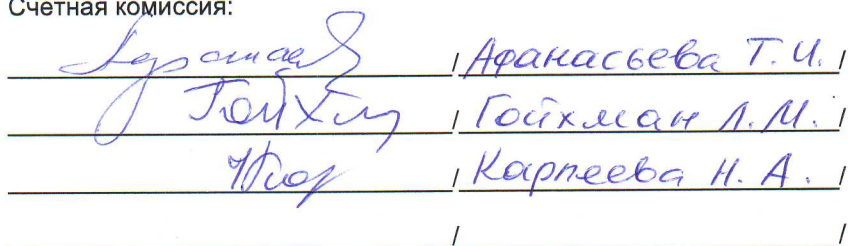 Счетная комиссия:
/ Афанасьева Т.И. /
Гойхм / Гойхман Л.М. /
/ Карпеева Н.А. /
/ /